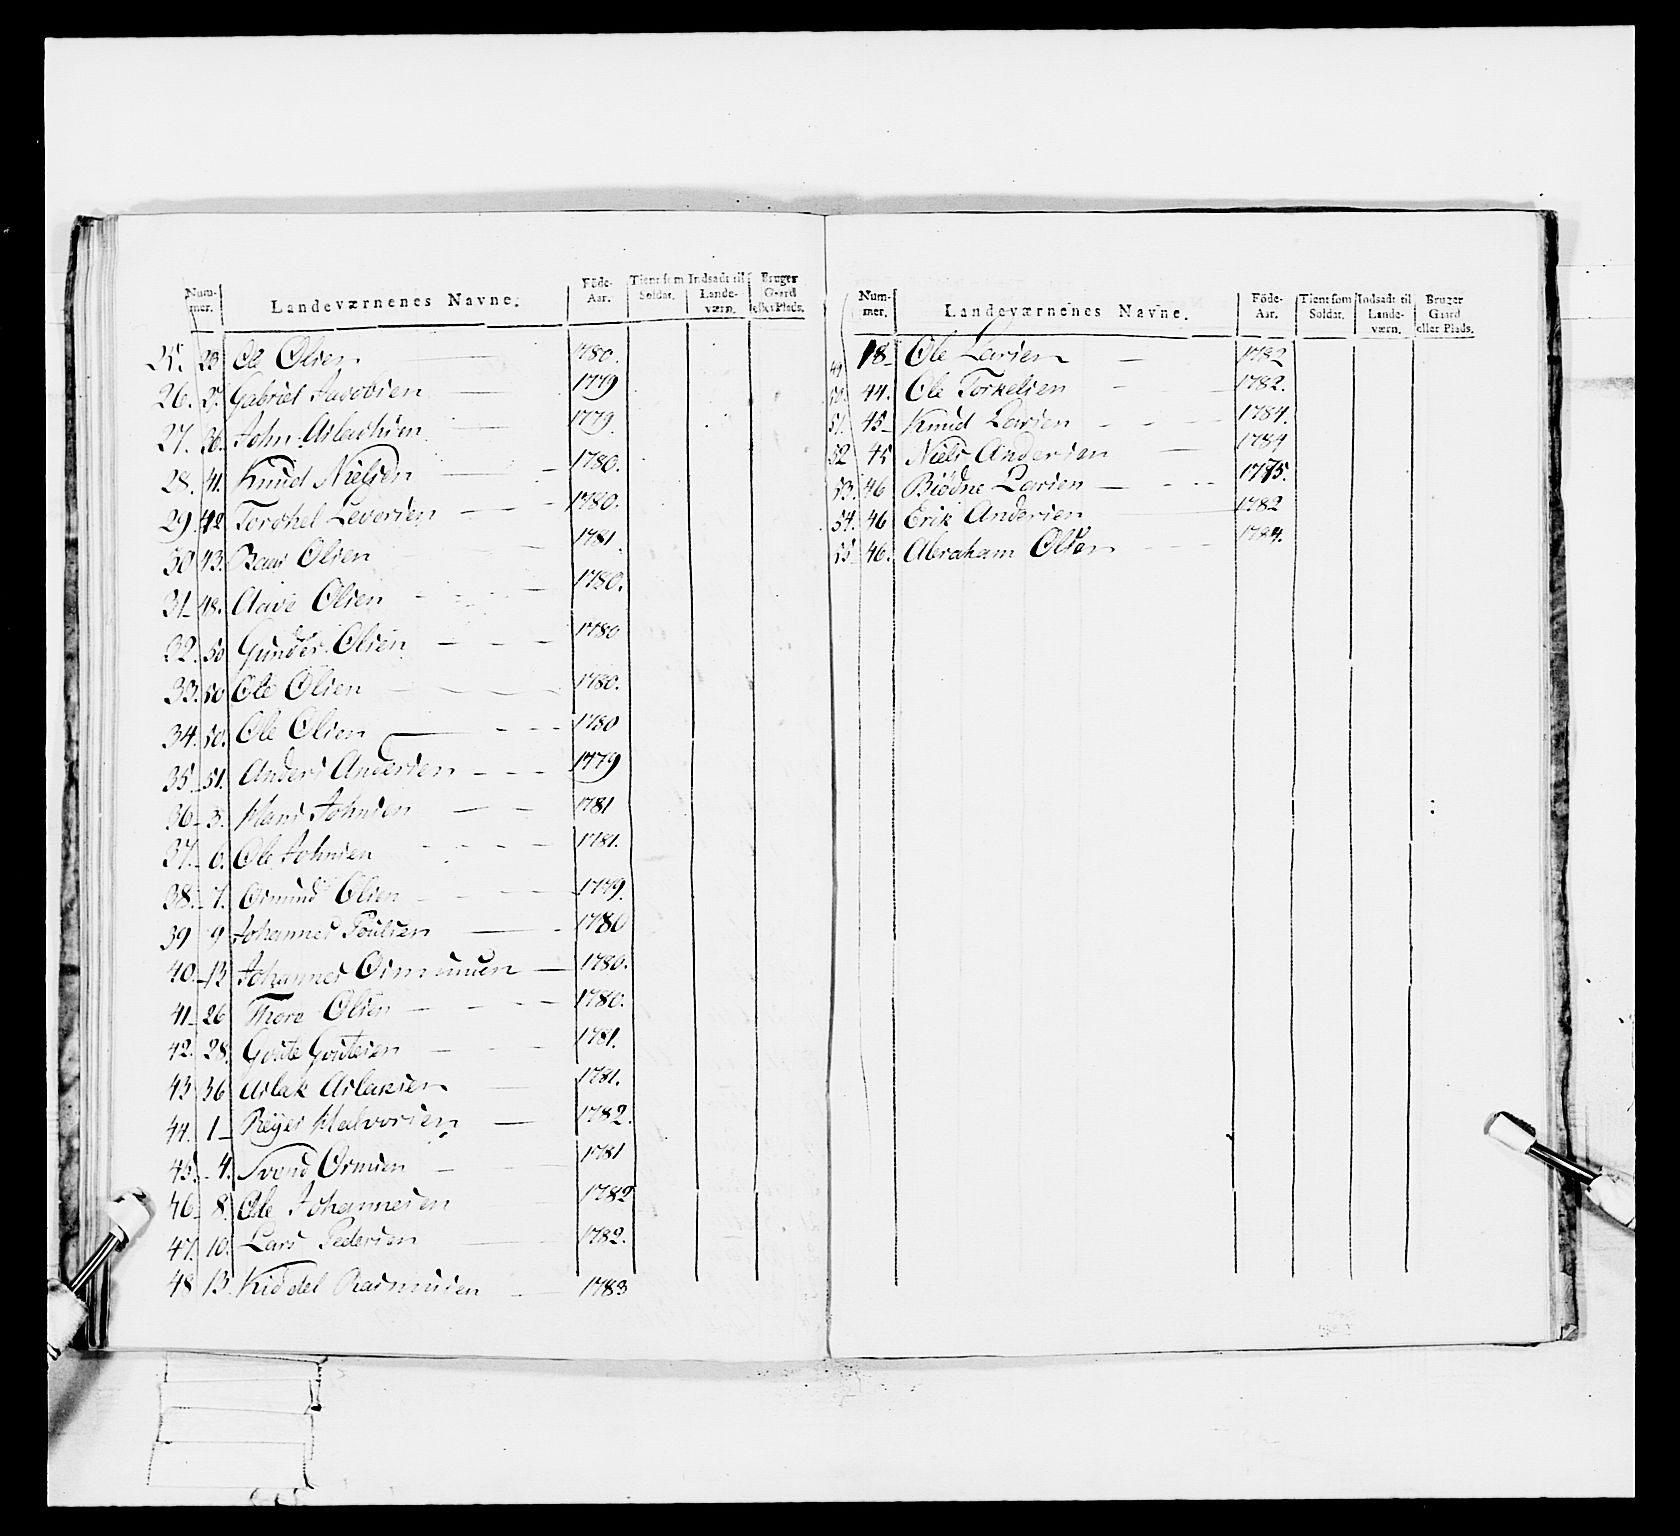 Num- Føde- Tient som Indsadt til Bruger
mer. Landeværnenes Navne. Aar. Soldat. Lande- Gaard
værn. eller Plads.
25. 23 Ole Olsen 1780.
26. 27. Gabriel Jacobsen 1779
27. 36. John Aslachsen 1779.
28. 41. Knud Nielsen 1780.
29. 42 Torchel Levorsen 1780.
30 43. Baar Olsen 1781.
31 48. Aave Olsen 1780.
32. 50 Gunder Olsen 1780
33. 50 Ole Olsen 1780.
34. 50. Ole Olsen 1780
35 51. Anders Andersen 1779
36 3. Hans Johnsen 1781
37. 6. Ole Johnsen 1781.
38. 7. Osmund Olsen 1779.
39 9 Johannes Poulsen 1780
40. 13 Johannes 1780.
41 26 Thore Olsen 1780.
42. 28. Goute Goutesen 1781.
43 36 Aslak Aslaksen 1781.
44. 1 Reyer Halvorsen 1782.
45. 4. Svend Ormsen 1781
46 8. Ole Johannesen 1782
47. 10. Lars Pedersen 1782.
48 13. Kiddel Rasmusen 1783
Num- Føde- Tient som Indsadt til Bruger
mer. Landeværnenes Navne. Aar. Soldat. Lande- Gaard
værn. eller Plads.
49 18 Ole Larsen 1782
50. 44. Ole Torkelsen 1782.
51. 45 Knud Larsen 1784.
52 45 Niels Andersen 1784
53. 46 Biødne Larsen 1785.
54. 46 Erik Andersen 1782
55 46. Abraham Olsen 1784.